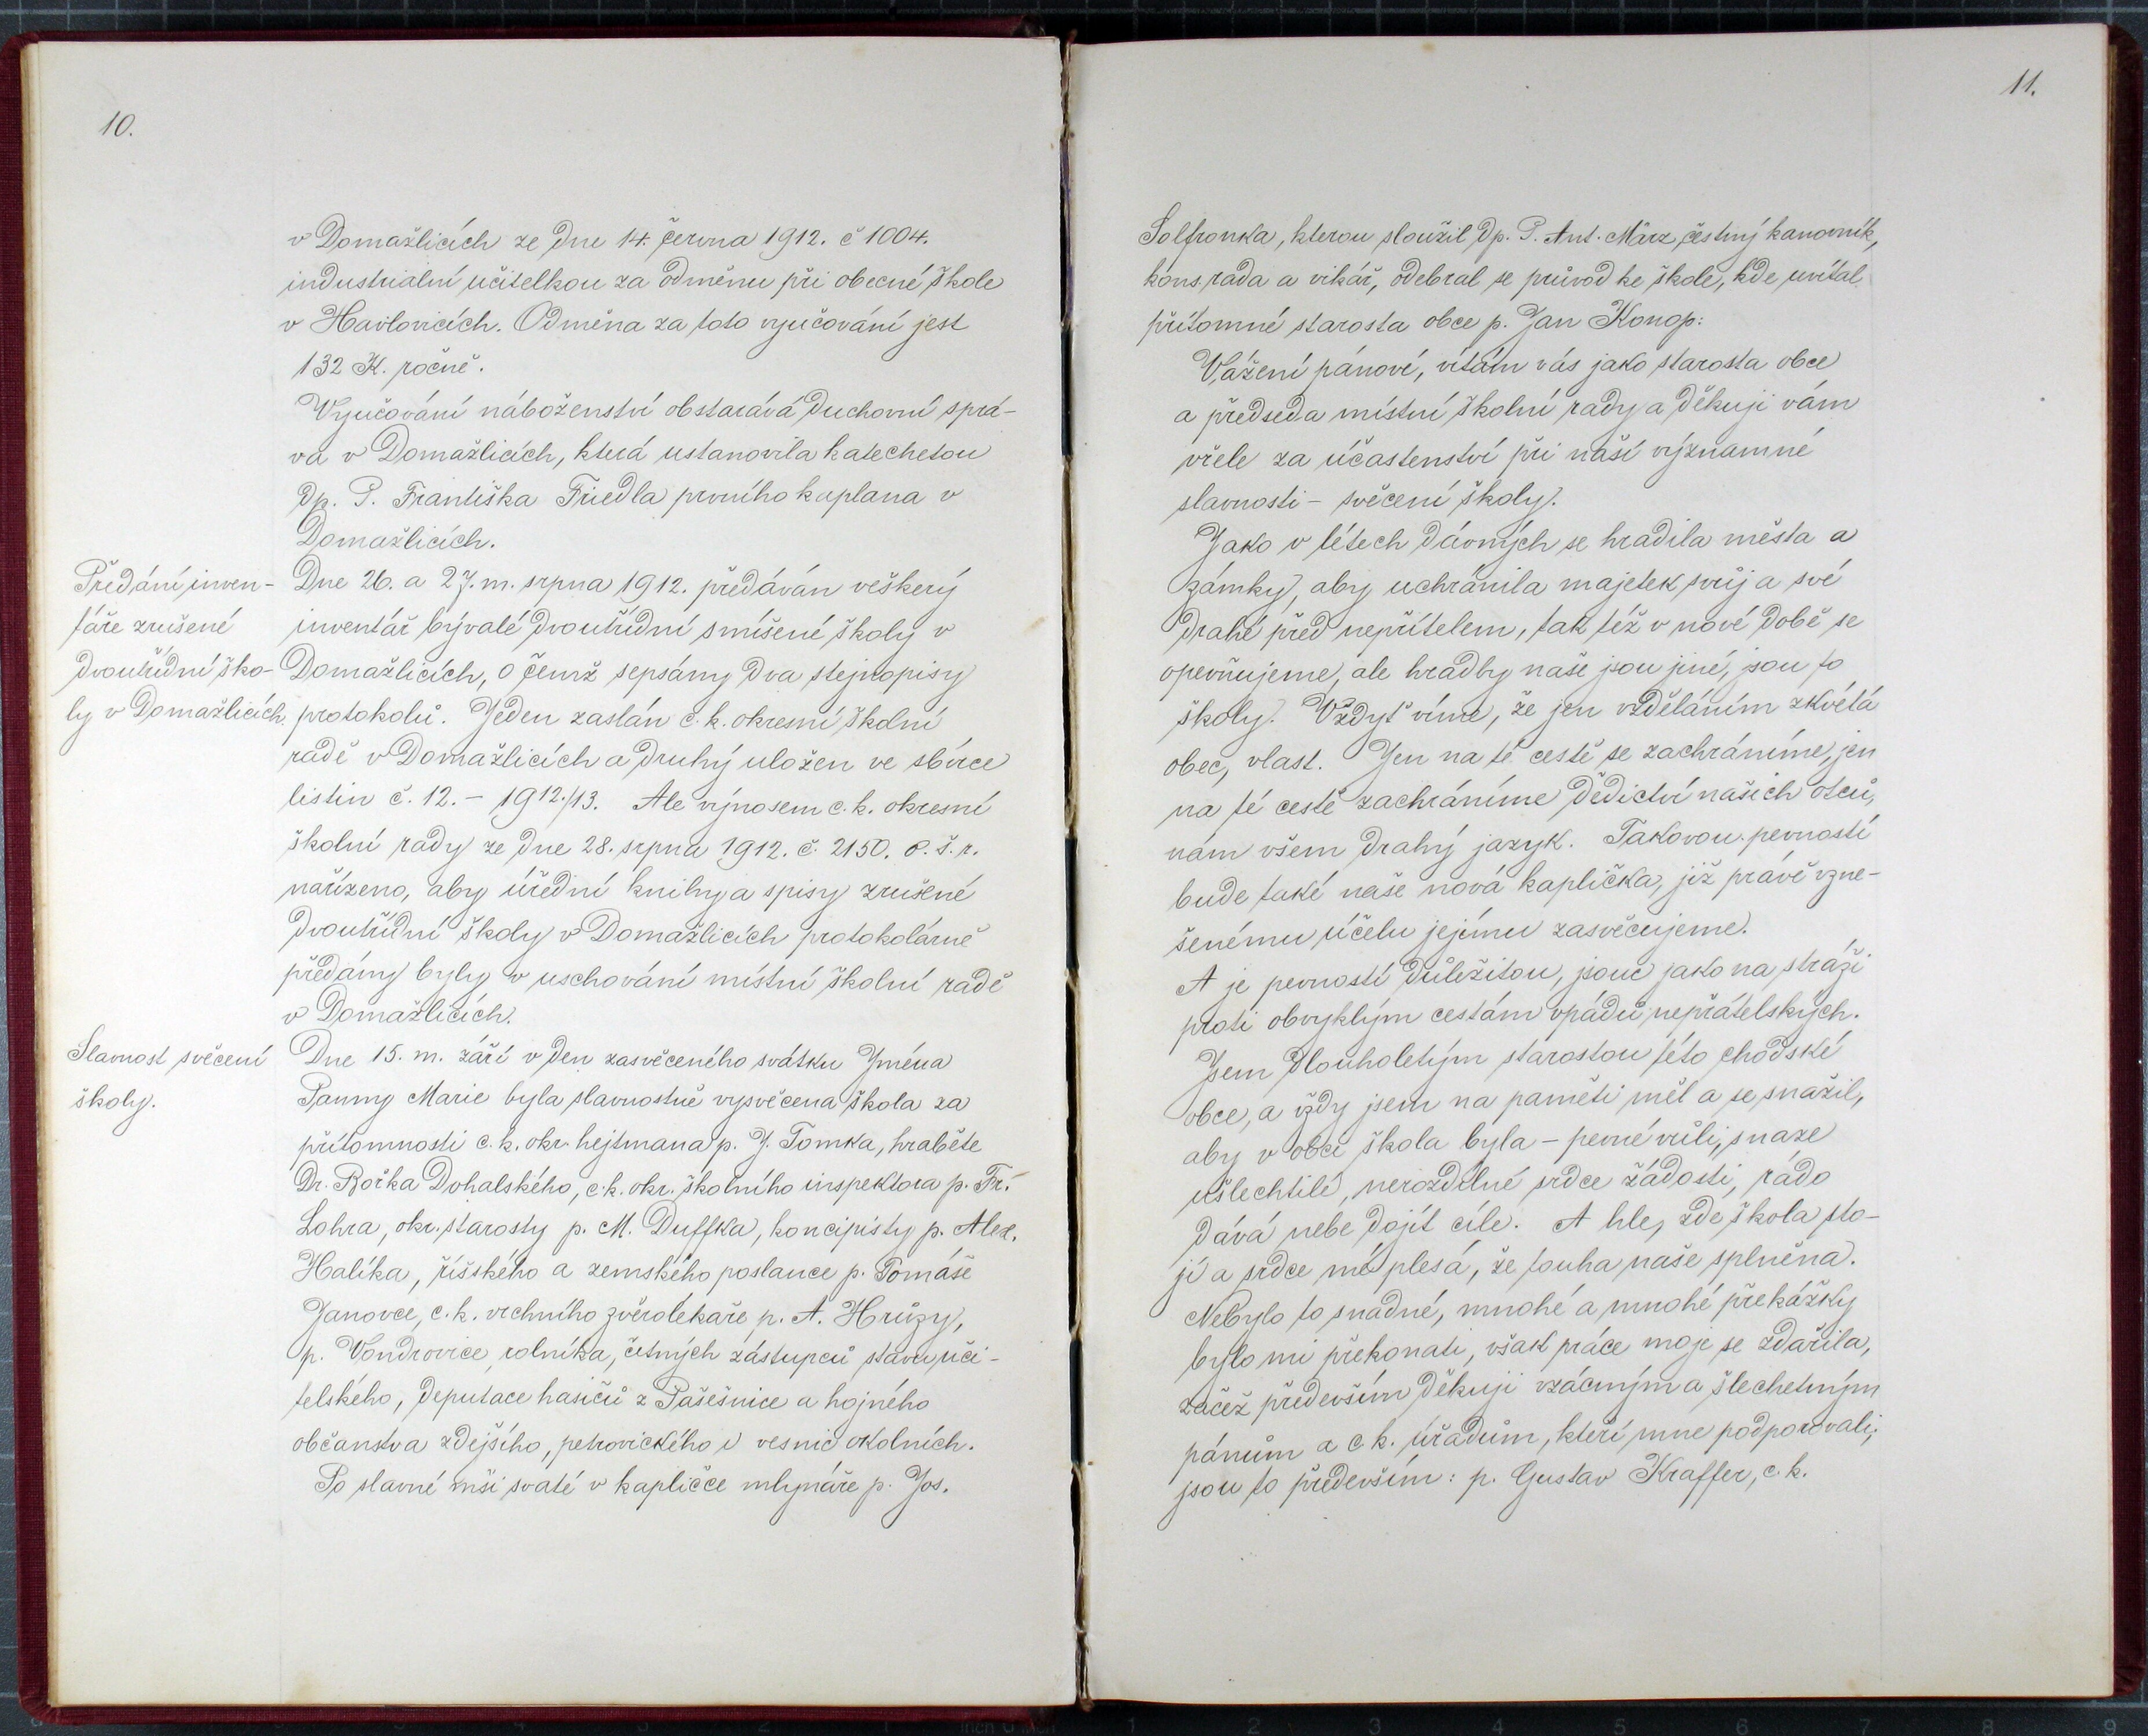 10.
v Domažlicích ze dne 14. června 1912. č 1004.
industrialní učitelkou za odměnu při obecné škole
v Havlovicích. Odměna za toto vyučování jest
132 K. ročně.
Vyučování náboženství obstarává duchovní sprá-
va v Domažlicích, která ustanovila katechetou
dp. P. Františka Friedla prvního kaplana v
Domažlicích.
Předání inven-
táře zrušené
dvoutřídní ško-
ly v Domažlicích.
Dne 26. a 27. m. srpna 1912. předáván veškerý
inventář bývalé dvoutřídní smíšené školy v
Domažlicích, o čemž sepsány dva stejnopisy
protokolů. Jeden zaslán c. k. okresní školní
radě v Domažlicích a druhý uložen ve sbírce
listin č. 12. - 1912./13. Ale výnosem c. k. okresní
školní rady ze dne 28. srpna 1912. č. 2150. o. š. r.
nařízeno, aby úřední knihy a spisy zrušené
dvoutřídní školy v Domažlicích protokolárně
předány byly v uschování místní školní radě
v Domažlicích.
Slavnost svěcení
školy.
Dne 15. m. září v den zasvěceného svátku Jména
Panny Marie byla slavnostně vysvěcena škola za
přítomnosti c. k. okr. hejtmana p. J. Tomka, hraběte
Dr. Bořka Dohalského, c. k. okr. školního inspektora p. Fr.
Lohra, okr. starosty p. M. Duffka, koncipisty p. Alex.
Halíka, říšského a zemského poslance p. Tomáše
Janovce, c. k. vrchního zvěrolékaře p. A. Hrůzy,
p. Vondrovice, rolníka, četných zástupců stavu uči-
telského, deputace hasičů z Pašešnice a hojného
občanstva zdejšího, petrovického i vesnic okolních.
Po slavné mši svaté v kapličce mlynáře p. Jos.
11.
Solfronka, kterou sloužil dp. P. Ant. März, čestný kanovník,
kons. rada a vikář, odebral se průvod ke škole, kde uvítal
přítomné starosta obce p. Jan Konop:
Vážení pánové, vítám vás jako starosta obce
a předseda místní školní rady a děkuji vám
vřele za účastenství při naší významné
slavnosti - svěcení školy.
Jako v létech dávných se hradila města a
zámky, aby uchránila majetek svůj a své
drahé před nepřítelem, tak též v nové době se
opevňujeme, ale hradby naše jsou jiné, jsou to
školy. Vždyť víme, že jen vzděláním zkvétá
obec, vlast. Jen na té cestě se zachráníme, jen
na té cestě zachráníme dědictví našich otců,
nám všem drahý jazyk. Takovou pevností
bude také naše nová kaplička, již právě vzne-
šenému účelu jejímu zasvěcujeme.
A je pevností důležitou, jsouc jako na stráži
proti obvyklým cestám vpádů nepřátelských.
Jsem dlouholetým starostou této chodské
obce, a vždy jsem na paměti měl a se snažil,
aby v obci škola byla - pevné vůli, snaze
ušlechtilé, nerozdílné srdce žádosti, rádo
dává nebe dojít cíle. A hle, zde škola sto-
jí a srdce mé plesá, že touha naše splněna.
Nebylo to snadné, mnohé a mnohé překážky
bylo mi překonati, však práce moje se zdařila,
začež především děkuji vzácným a šlechetným
pánům a c k. úřadům, kteří mne podporovali;
jsou to především: p. Gustav Kraffer, c. k.